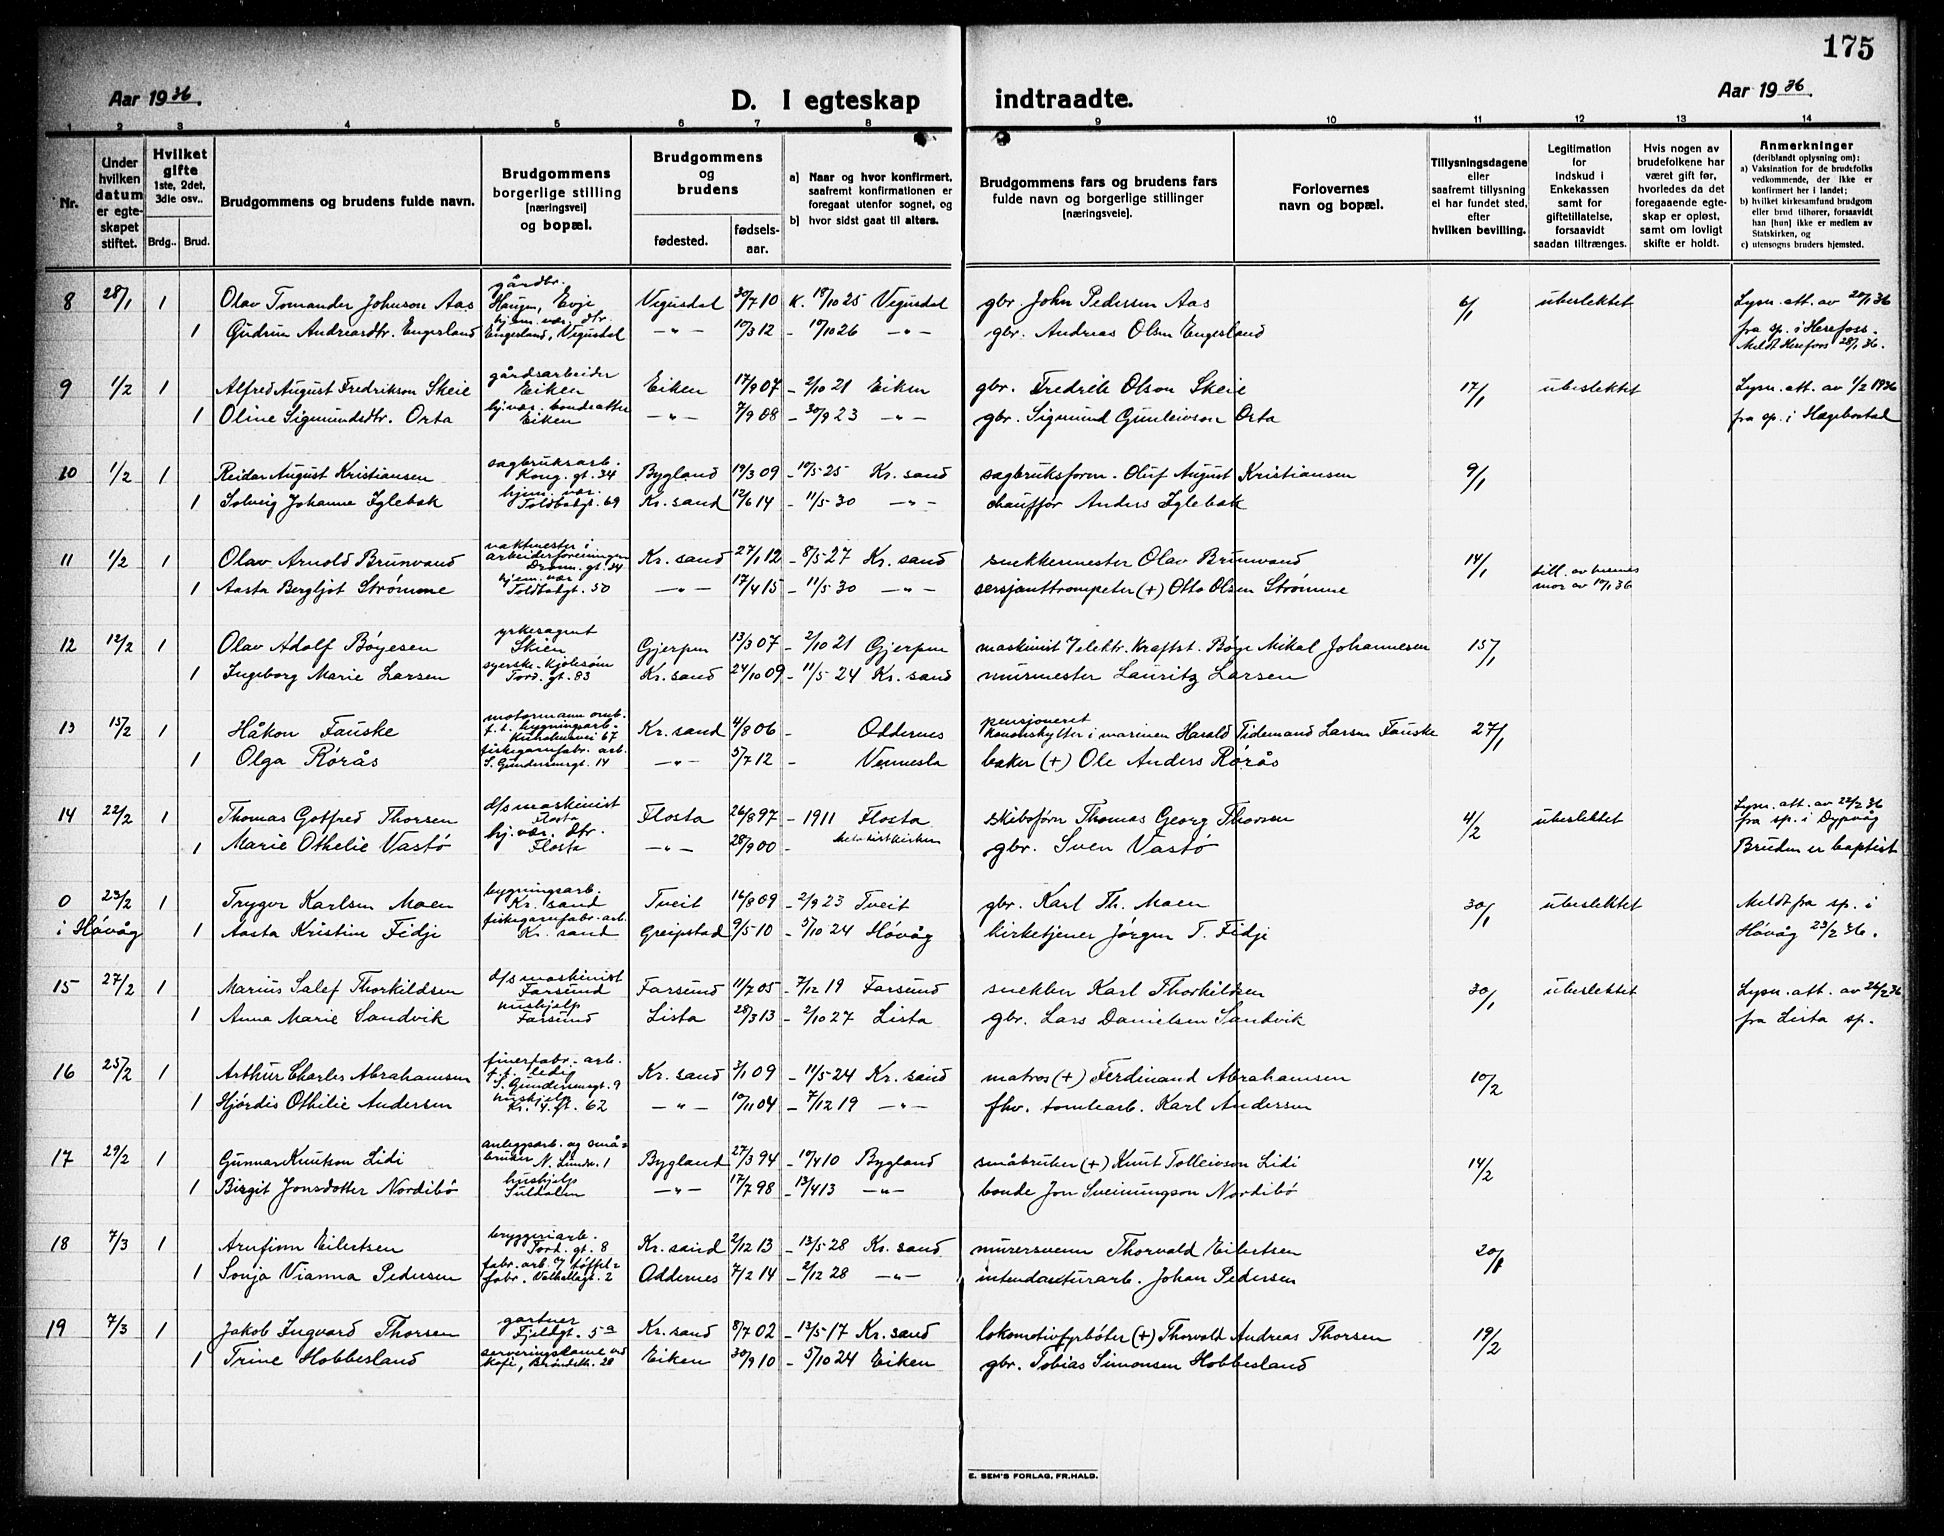 175
Aar 1936.
D. I egteskap indtraadte.
Aar 1936.
1 2 3 4 5 6 7 8 9 10 11 12 13 14
Nr.
Under hvilken datum er egteskapet stiftet.
Hvilket gifte 1ste, 2det, 3dle osv..
Brdg.. Brud.
Brudgommens og brudens fulde navn.
Brudgommens borgerlige stilling [næringsvei] og bopæl.
Brudgommens og brudens
fødested. fødselsaar.
a) Naar og hvor konfirmert, saafremt konfirmationen er foregaat utenfor sognet, og
b) hvor sidst gaat til alters.
Brudgommens fars og brudens fars fulde navn og borgerlige stillinger [næringsveie].
Forlovernes navn og bopæl.
Tillysningsdagene eller saafremt tillysning ei har fundet sted, efter hvilken bevilling.
Legitimation for indskud i Enkekassen samt for giftetillatelse, forsaavidt saadan tiltrænges.
Hvis nogen av brudefolkene har været gift før, hvorledes da det foregaaende egteskap er opløst, samt om lovligt skifte er holdt.
Anmerkninger (deriblandt oplysning om):
a) Vaksination for de brudefolks vedkommende, der ikke er konfirmert her i landet;
b) hvilket kirkesamfund brudgom eller brud tilhører, forsaavidt han [hun] ikke er medlem av Statskirken, og
c) utensogns bruders hjemsted.
8 28/1 1 Olav Tomander Johnson Aas gårdbr. Haugen, Evje Vegusdal 30/7 10 K. 18/10 25 Vegusdal gbr. John Pedersen Aas 6/1 ubeslektet Lysn. att. av 20/1 36
1 Gudrun Andreasdtr. Engesland hjem. vær. dtr. Engesland, Vegusdal —"— 17/3 12 - 10/10 26 —"— gbr. Andreas Olsen Engesland fra sp. i Herefoss. Meldt Herefoss 28/1 36.
9 1/2 1 Alfred August Fredrikson Skeie gårdsarbeider Eiken Eiken 17/9 07 - 2/10 21 Eiken gbr. Fredrik Olson Skeie 17/1 ubeslektet Lysn. att. av 1/2 1936
1 Oline Sigmundsdtr. Orta hj. vær. bondedtter Eiken —"— 7/9 08 - 30/9 23 —"— gbr. Sigmund Gunleivson Orta fra sp. i Hægebostad
10 1/2 1 Reidar August Kristiansen sagbruksarb. Kong. gt. 34 Bygland 19/3 09 - 10/5 25 Kr. sand sagbruksform. Oluf August Kristiansen 9/1
1 Solveig Johanne Iglebæk hjem. vær. Toldbodgt. 69 Kr. sand 12/6 14 - 11/5 30 —"— chauffør Anders Iglebæk
11 1/2 1 Olav Arnold Brunvand vaktmester i arbeiderforeningen Dronn. gt. 34 Kr. sand 27/1 12 - 8/5 27 Kr. sand snekkermester Olav Brunvand 14/1
1 Aasta Bergljot Strømme hjem. vær Toldbodgt. 50 —"— 17/4 15 - 11/5 30 —"— sersjanttrompeter (+) Otto Olsen Strømme till. av hennes mor av 10/1 36
12 12/2 1 Olav Adolf Bøyesen yrkesagent Skien Gjerpen 13/3 07 - 2/10 21 Gjerpen maskinist v/ elektr. kraftst. Bøye Mikal Johannesen 15/1
1 Ingeborg Marie Larsen syerske - kjolesøm Tord. gt. 83 Kr. sand 24/10 09 - 11/5 24 Kr. sand murmester Lauritz Larsen
13 15/2 1 Håkon Fauske motormann omb. f.t. bygningsarb. Kuholmsvei 67 Kr. sand 4/8 06 - Oddernes pensjoneret kanonskytter i marinen Harald Tidemand Larsen Fauske 27/1
1 Olga Rørås fiskegarnfabr. arb. S. Gundersensgt. 14 —"— 5/7 12 - Vennesla baker (+) Ole Anders Rørås
14 22/2 1 Thomas Gotfred Thorsen d/s maskinist Flosta Flosta 26/8 97 - 1911 Flosta skibsførn Thomas Georg Thorsen 4/2 ubeslektet Lysn. att. av 22/2 36 fra sp. i Dypvåg
1 Marie Othelie Vastø hj. vær. dtr. Flosta —"— 28/9 00 - Metodistkirken gbr. Sven Vastø Bruden er baptist
0 23/2 1 Trygve Karlsen Moen bygningsarb. Kr. sand Tveit 16/8 09 - 2/9 23 Tveit gbr. Karl Th. Moen 30/1 ubeslektet Meldt fra sp. i
i Høvåg 1 Aasta Kristine Fidje fiskegarnfabr. arb. Kr. sand Greipstad 9/5 10 - 5/10 24 Høvåg kirketjener Jørgen T. Fidje Høvåg 23/2 36.
15 27/2 1 Marius Salef Thorkildsen d/s maskinist Farsund Farsund 11/7 05 - 7/12 19 Farsund snekker Karl Thorkildsen 30/1 ubeslektet Lysn. att. av 26/2 36
1 Anna Marie Sandvik hushjelp Farsund Lista 28/3 13 - 2/10 27 Lista gbr. Lars Danielsen Sandvik fra Lista sp.
16 25/2 1 Arthur Charles Abrahamsen finerfabr. arb. f.t. ledig S. Gundersensgt. 9 Kr. sand 3/1 09 - 11/5 24 Kr. sand matros (+) Ferdinand Abrahamsen 10/2
1 Hjørdis Othilie Andersen hushjelp Kr. 4. gt. 62 —"— 10/11 04 - 7/12 19 —"— fhv. tomtearb. Karl Andersen
17 29/2 1 Gunnar Knutson Lidi anleggsarb. og småbruker N. Lundv. 1 Bygland 27/3 94 - 10/4 10 Bygland småbruker (+) Knut Tolleivson Lidi 14/2
1 Birgit Jonsdotter Nordibø hushjelp Suldalen —"— 17/7 98 - 13/4 13 —"— bonde Jon Sveinungson Nordibø
18 7/3 1 Arnfinn Eilertsen bryggeriarb. Tord. gt. 8 Kr. sand 2/12 13 - 13/5 28 Kr. sand murersvenn Thorvald Eilertsen 20/1
1 Sonja Vianna Pedersen fabr. arb. v/ tøffelfabr. Valhallagt. 2 Oddernes 7/2 14 - 2/12 28 —"— intendanturarb. Johan Pedersen
19 7/3 1 Jakob Ingvard Thorsen gartner Fjeldgt. 5a Kr. sand 8/7 02 - 13/5 17 Kr. sand lokomotivfyrbøter (+) Thorvald Andreas Thorsen 19/2
1 Trine Hobbesland serveringsdame ved kafe, Brøndstk. 28 Eiken 30/9 10 - 5/10 24 Eiken gbr. Tobias Simonsen Hobbesland
E. SEM'S FORLAG, FR.HALD.